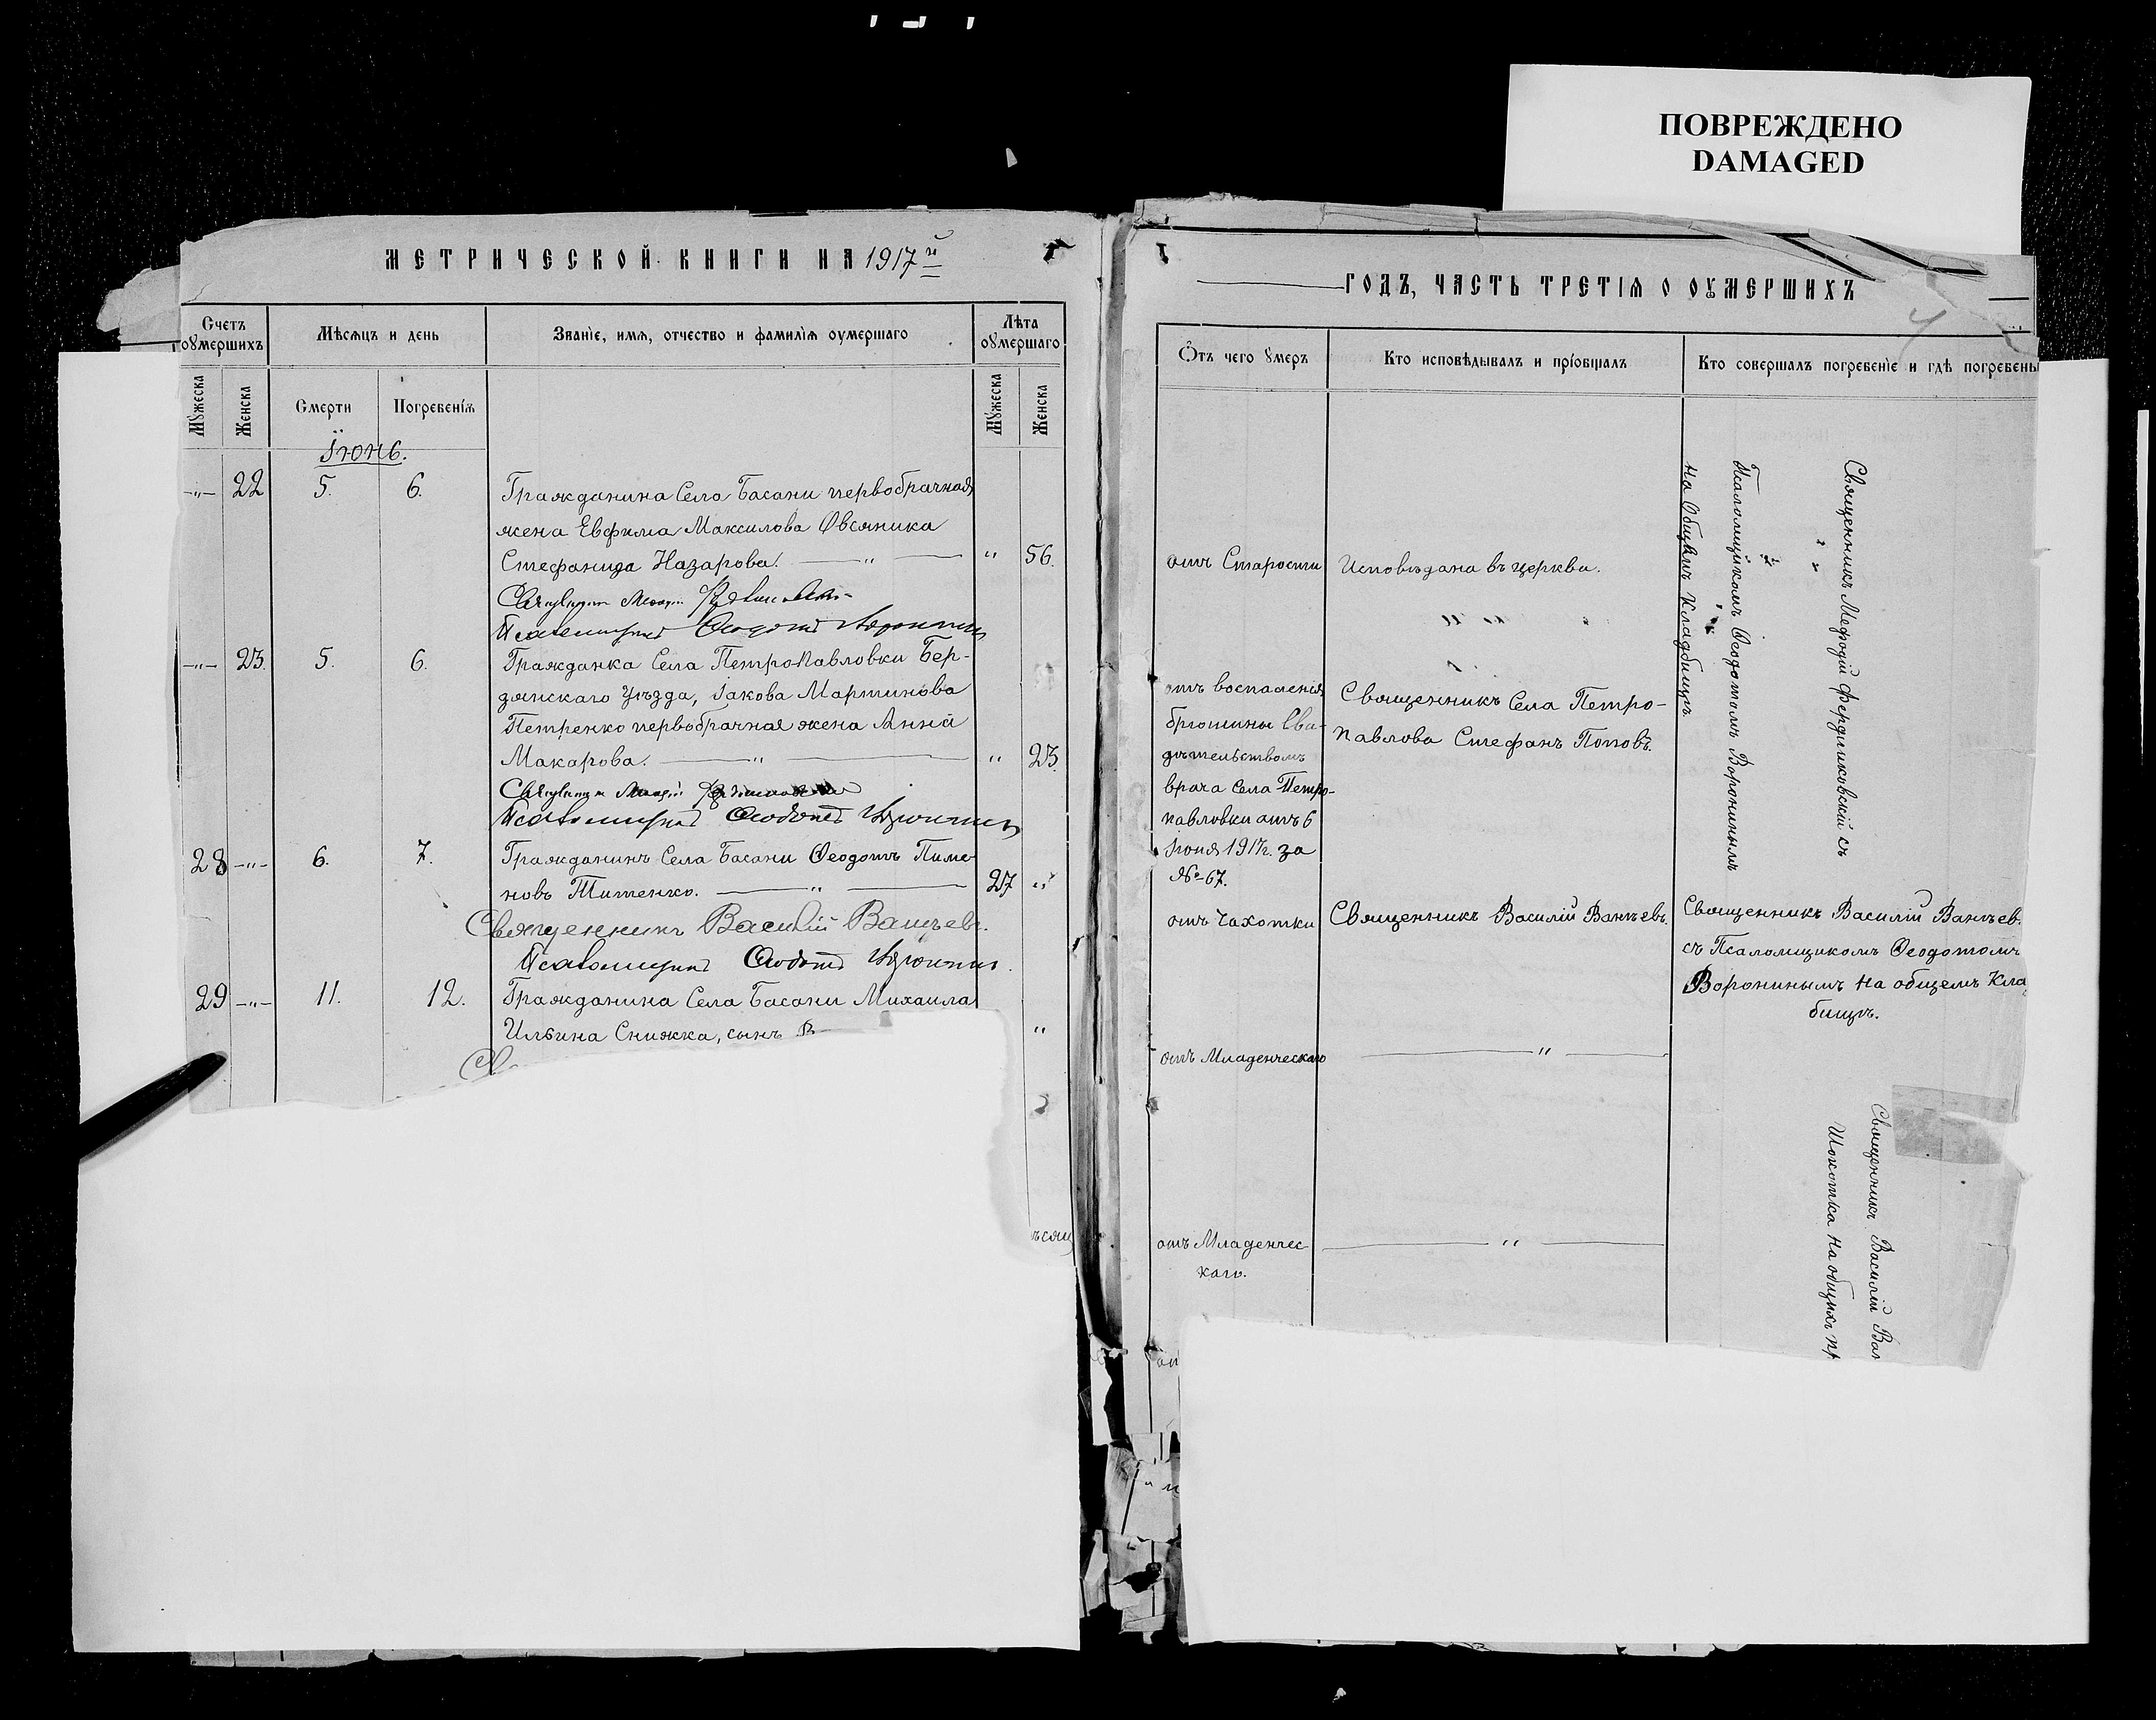 ПОВРЕЖДЕНО
DAMAGED
МЕТРИЧЕСКОЙ КНИГИ НА 1917 й
Счетъ оумершихъ
Мѣсяцъ и день
Званіе, имя, отчество и фамилія оумершаго
Лѣта оумершаго
Мужеска
Женска
Смерти
Погребенія
Мужеска
Женска
Іюнь.
—"— 22 5. 6. Гражданина Села Басани первобрачная
жена Евфима Максимова Овсяника
Стефанида Назарова. — " — " 56.
Псаломщикъ Ѳеодотъ Воронинъ
—"— 23. 5. 6. Гражданка Села Петропавловки Бер-
дянскаго Уѣзда, Іакова Мартинова
Петренко первобрачная жена Анна
Макарова. — " — " 23.
Псаломщикъ Ѳеодотъ Воронинъ
28 —"— 6. 7. Гражданинъ Села Басани Ѳеодотъ Пиме-
новъ Титенко. — " — 27 "
Священникъ Василій Ванчевъ.
Псаломщикъ Ѳеодотъ Воронинъ.
29 —"— 11. 12. Гражданина Села Басани Михаила
Ильина Снижка, сынъ "
ѣсяц
ГОДЪ, ЧАСТЬ ТРЕТІЯ О ОУМЕРШИХЪ
Отъ чего умеръ
Кто исповѣдывалъ и пріобщалъ
Кто совершалъ погребеніе и гдѣ погребены
отъ Старости
Исповѣдана въ церкви.
Священникъ Мефодій Фердиковскій съ
Псаломщикомъ Ѳеодотомъ Воронинымъ
на Общемъ Кладбищѣ
отъ воспаленія
брюшины Сви-
дѣтельствомъ
врача Села Петро-
павловки отъ 6
Іюня 1917г. за
№ 67.
Священникъ Села Петро-
павлова Стефанъ Поповъ.
отъ Чахотки
Священникъ Василій Ванчевъ.
Священникъ Василій Ванчев.
съ Псаломщикомъ Ѳеодотомъ
Воронинымъ на общемъ Кла
бищѣ.
отъ Младенческаго
— " —
отъ Младенчес-
каго.
— " —
Священникъ Василій Ван